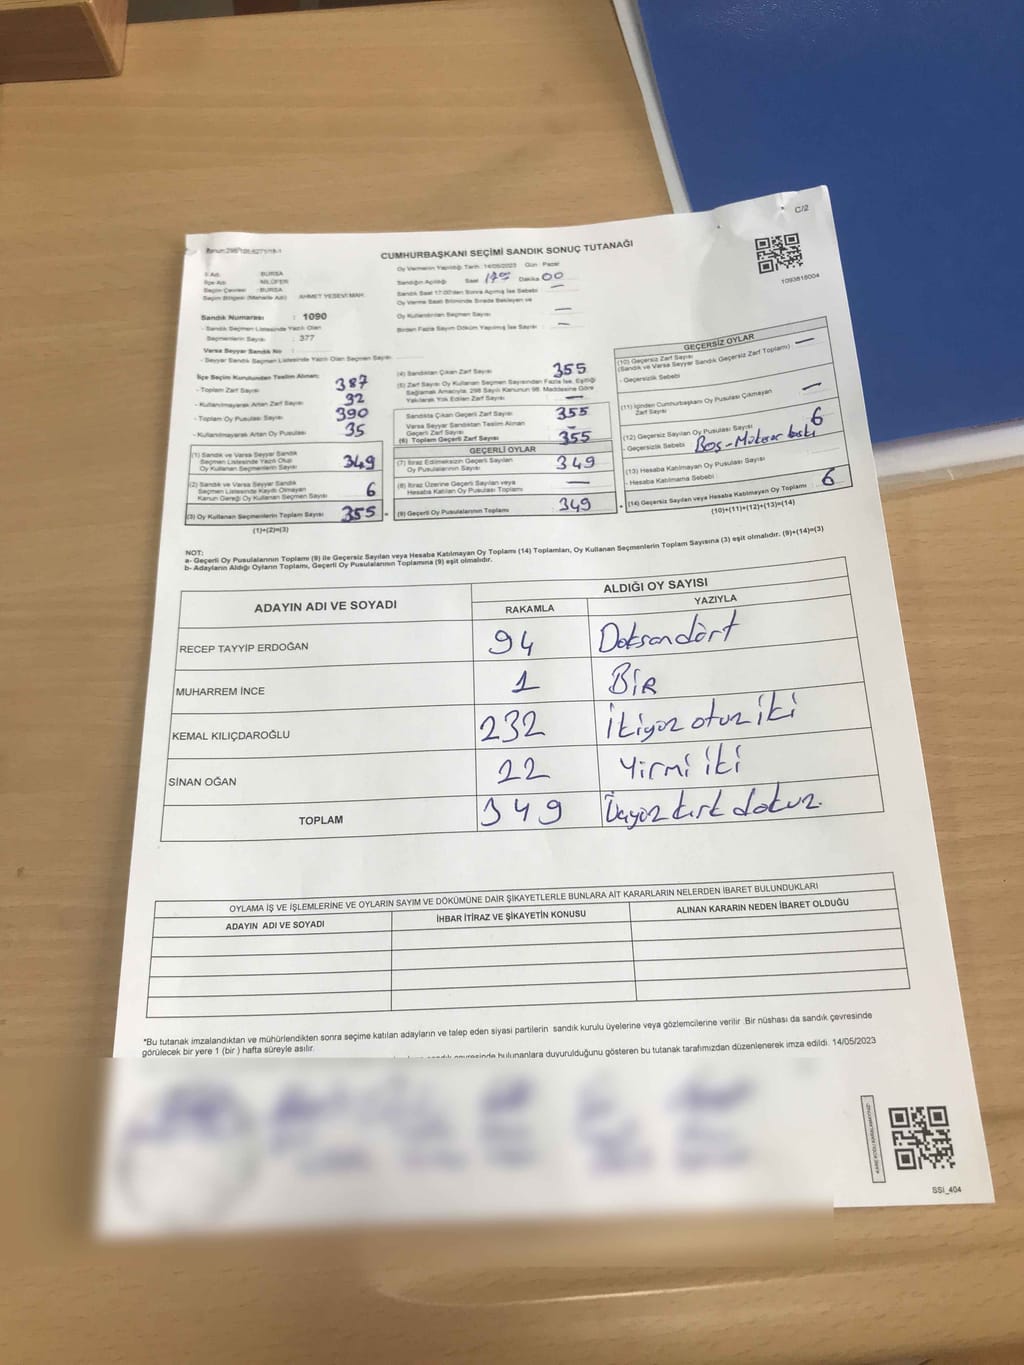 C/2
CUMHURBAŞKANI SEÇİMİ SANDIK SONUÇ TUTANAĞI
1093818004
İl Adı :BURSA
İlçe Adı :NİLÜFER
Seçim Çevresi :BURSA
Seçim Bölgesi (Mahalle Adı) AHMET YESEVİ MAH.
Sandık Numarası : 1090
- Sandık Seçmen Listesinde Yazılı Olan
Seçmenlerin Sayısı : 377
Varsa Seyyar Sandık No :
- Seyyar Sandık Seçmen Listesinde Yazılı Olan Seçmen Sayısı
Oy Vermenin Yapıldığı Tarih : 14/05/2023 Gün : Pazar
Sandığın Açıldığı Saat Dakika 00
Sandık Saat 17:00'den Sonra Açılmış İse Sebebi —
Oy Verme Saati Bitiminde Sırada Bekleyen ve
Oy Kullandırılan Seçmen Sayısı —
Birden Fazla Sayım Döküm Yapılmış İse Sayısı —
İlçe Seçim Kurulundan Teslim Alınan;
- Toplam Zarf Sayısı 387
- Kullanılmayarak Artan Zarf Sayısı 32
- Toplam Oy Pusulası Sayısı 390
- Kullanılmayarak Artan Oy Pusulası 35
(1) Sandık ve Varsa Seyyar Sandık
Seçmen Listesinde Yazılı Olup
Oy Kullanan Seçmenlerin Sayısı 349
(2) Sandık ve Varsa Seyyar Sandık
Seçmen Listesinde Kayıtlı Olmayan
Kanun Gereği Oy Kullanan Seçmen Sayısı 6
(3) Oy Kullanan Seçmenlerin Toplam Sayısı 355 =
(1)+(2)=(3)
(4) Sandıktan Çıkan Zarf Sayısı 355
(5) Zarf Sayısı Oy Kullanan Seçmen Sayısından Fazla İse, Eşitliği
Sağlamak Amacıyla, 298 Sayılı Kanunun 98. Maddesine Göre
Yakılarak Yok Edilen Zarf Sayısı —
Sandıkta Çıkan Geçerli Zarf Sayısı 355
Varsa Seyyar Sandıktan Teslim Alınan
Geçerli Zarf Sayısı —
(6) Toplam Geçerli Zarf Sayısı 355
GEÇERLİ OYLAR
(7) İtiraz Edilmeksizin Geçerli Sayılan
Oy Pusulalarının Sayısı 349
(8) İtiraz Üzerine Geçerli Sayılan veya
Hesaba Katılan Oy Pusulası Toplamı —
(9) Geçerli Oy Pusulalarının Toplamı 349 +
GEÇERSİZ OYLAR
(10) Geçersiz Zarf Sayısı
(Sandık ve Varsa Seyyar Sandık Geçersiz Zarf Toplamı) —
- Geçersizlik Sebebi
(11) İçinden Cumhurbaşkanı Oy Pusulası Çıkmayan
Zarf Sayısı —
(12) Geçersiz Sayılan Oy Pusulası Sayısı 6
- Geçersizlik Sebebi Boş-Mükerrer baskı
(13) Hesaba Katılmayan Oy Pusulası Sayısı
- Hesaba Katılmama Sebebi
(14) Geçersiz Sayılan veya Hesaba Katılmayan Oy Toplamı 6
(10)+(11)+(12)+(13)=(14)
NOT:
a- Geçerli Oy Pusulalarının Toplamı (9) ile Geçersiz Sayılan veya Hesaba Katılmayan Oy Toplamı (14) Toplamları, Oy Kullanan Seçmenlerin Toplam Sayısına (3) eşit olmalıdır. (9)+(14)=(3)
b- Adayların Aldığı Oyların Toplamı, Geçerli Oy Pusulalarının Toplamına (9) eşit olmalıdır.
ADAYIN ADI VE SOYADI ALDIĞI OY SAYISI
RAKAMLA YAZIYLA
RECEP TAYYİP ERDOĞAN 94 Doksandört
MUHARREM İNCE 1 BİR
KEMAL KILIÇDAROĞLU 232 İkiyüz otuz iki
SİNAN OĞAN 22 Yirmi iki
TOPLAM 349 Üçyüz kırk dokuz.
OYLAMA İŞ VE İŞLEMLERİNE VE OYLARIN SAYIM VE DÖKÜMÜNE DAİR ŞİKAYETLERLE BUNLARA AİT KARARLARIN NELERDEN İBARET BULUNDUKLARI
ADAYIN ADI VE SOYADI İHBAR İTİRAZ VE ŞİKAYETİN KONUSU ALINAN KARARIN NEDEN İBARET OLDUĞU
*Bu tutanak imzalandıktan ve mühürlendikten sonra seçime katılan adayların ve talep eden siyasi partilerin sandık kurulu üyelerine veya gözlemcilerine verilir .Bir nüshası da sandık çevresinde
görülecek bir yere 1 (bir ) hafta süreyle asılır.
bulunanlara duyurulduğunu gösteren bu tutanak tarafımızdan düzenlenerek imza edildi. 14/05/2023
SSİ_404